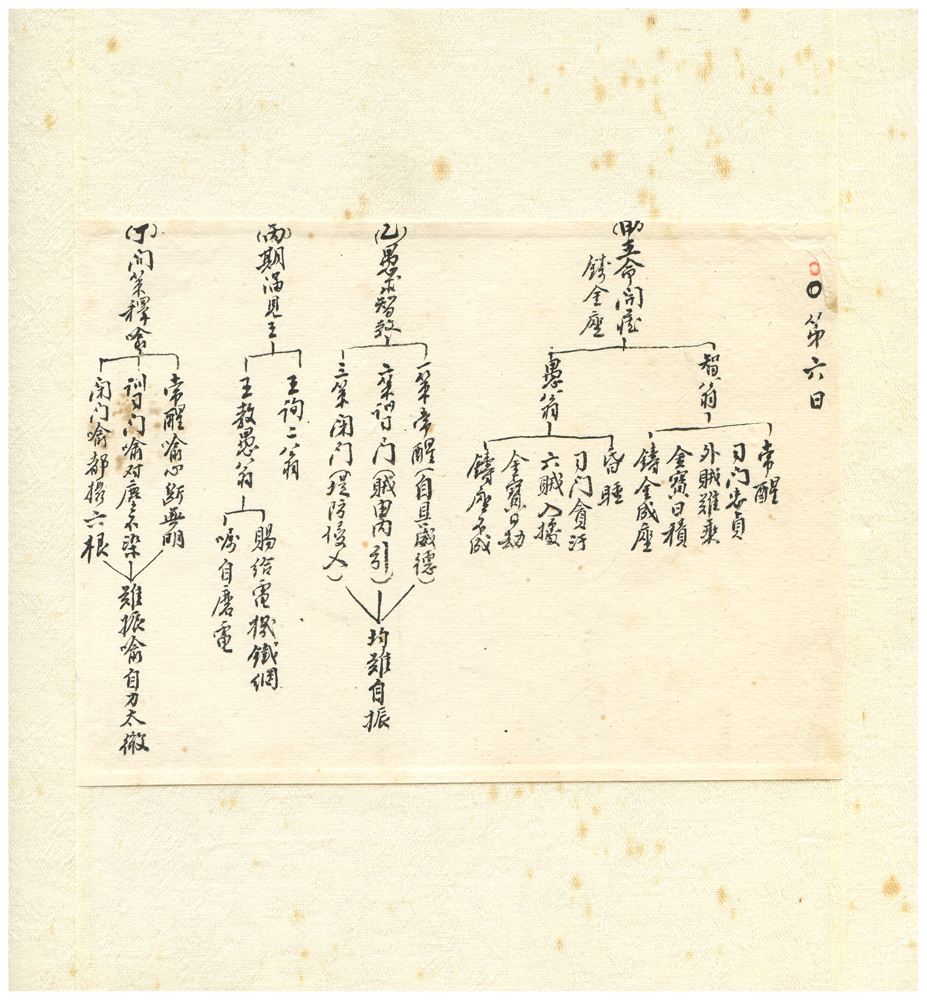 ○第六日
(甲)王命開礦
鑄金座
智翁
常醒
司門安貞
外賊難乘
金寶日積
鑄金成座
愚翁
昏睡
司門貪汙
六賊入擾
金寶日劫
鑄座不成
(乙)愚求智教
一策常醒(自具威德)
二策訓門(賊由內引)
三策閉門(堤防侵入)
均難自振
(丙)期滿見王
王詢二翁
王教愚翁
賜給電機鐵網
囑自磨電
(丁)開策釋喻
常醒喻心斷無明
訓門喻对塵不染
閉門喻都攝六根
難振喻自力太微